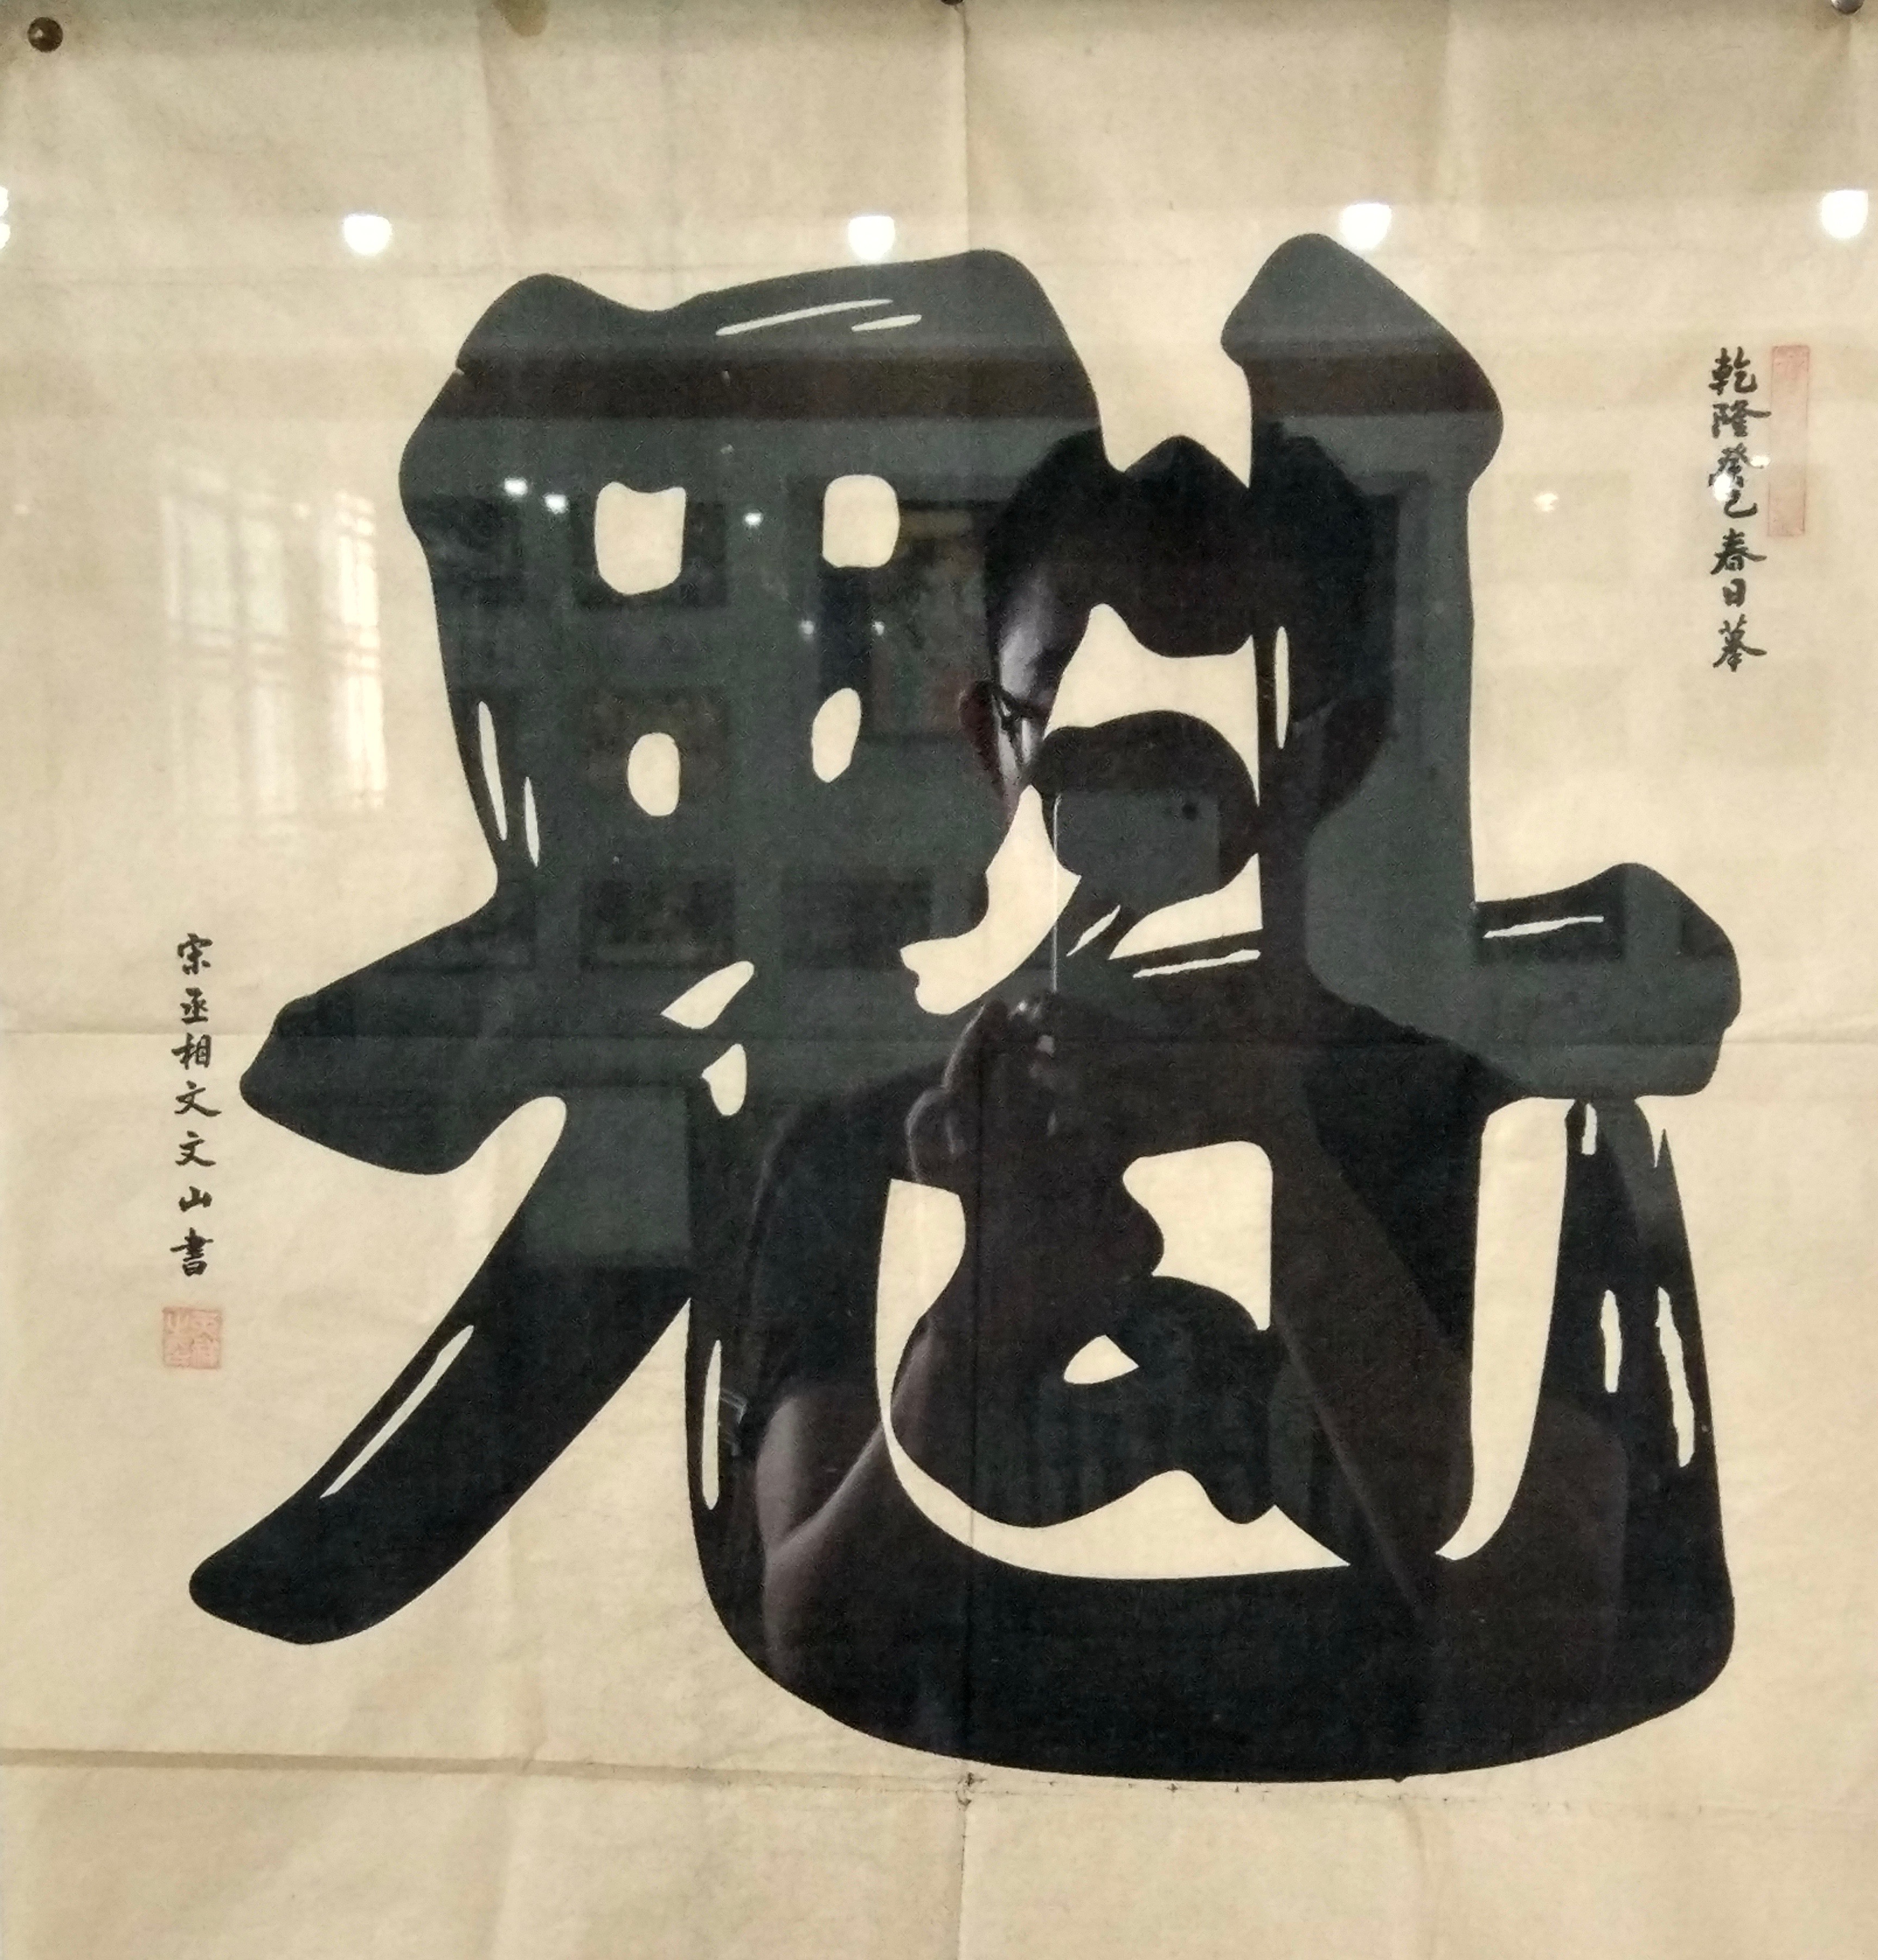 乾隆癸巳春日摹
魁
宋丞相文文山書